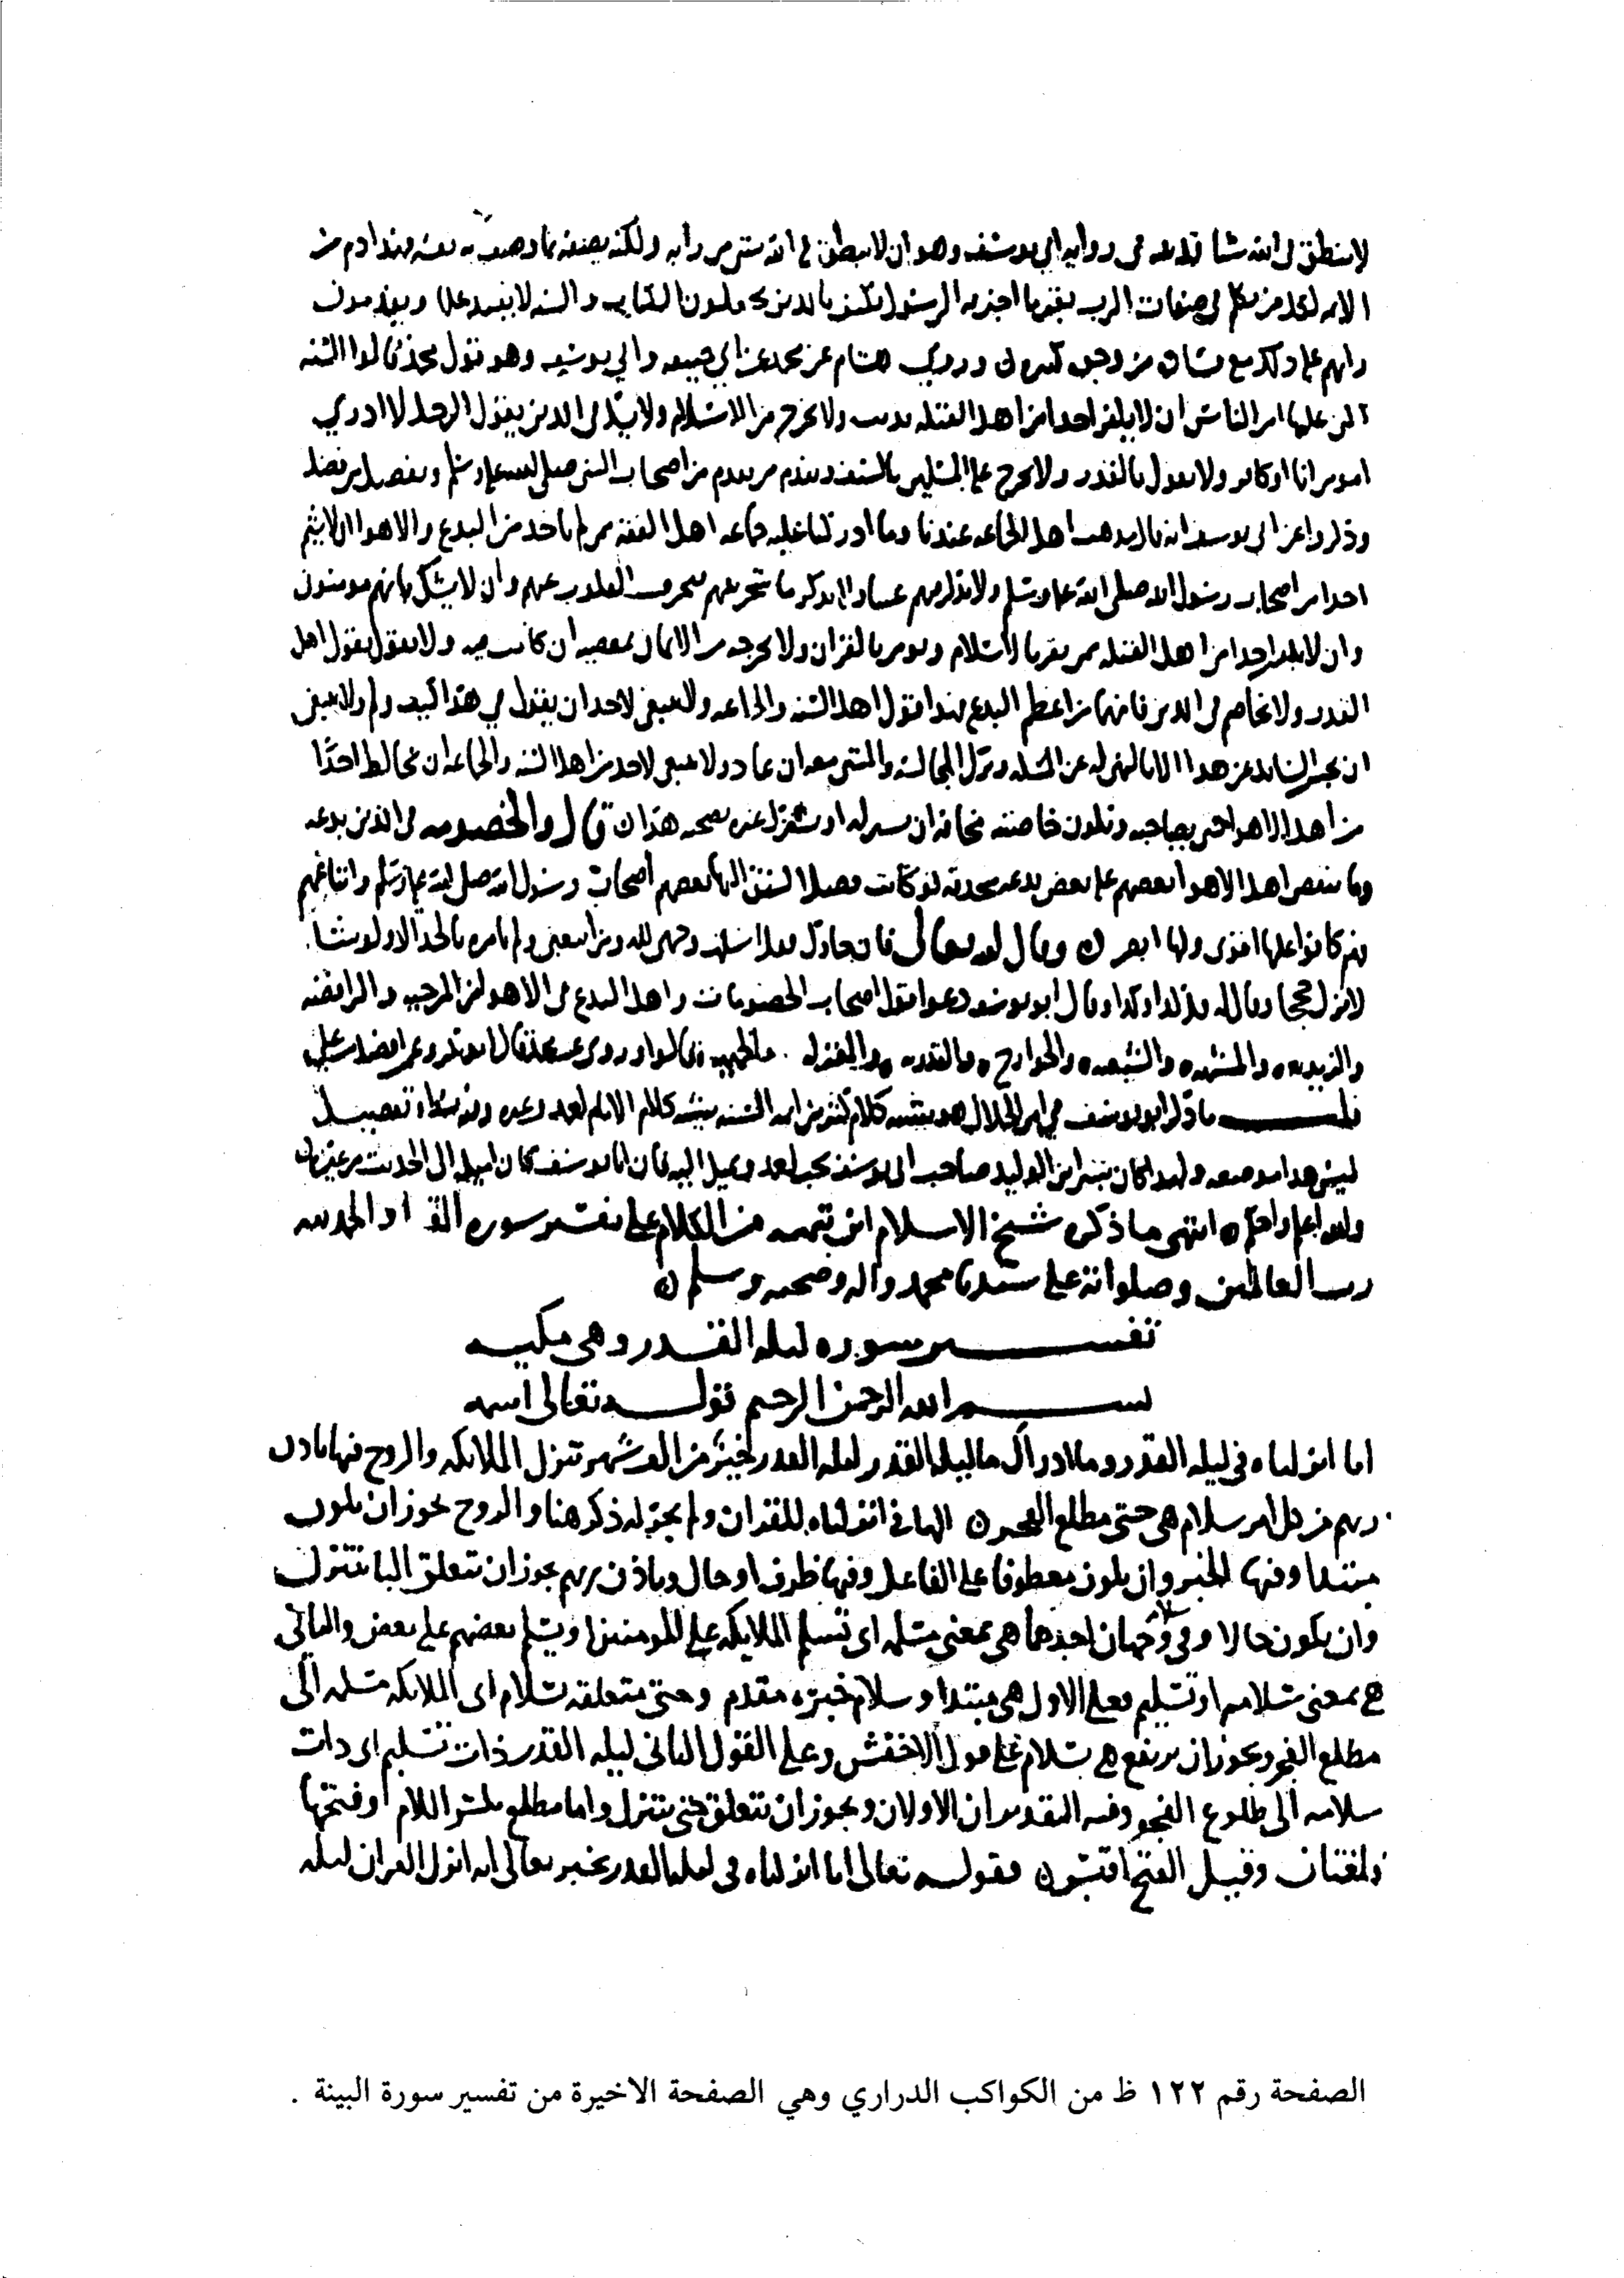 لا ينطق في الله شيا في روايه ابي يوسف وهو ان لا ينطق في الله بشي من رايه ولكنه يصفه بما وصف به نفسه فهذا ذم من
الايمه لكل من تكلم في صفات الرب بغير ما اخبر به الرسول فكيف بالذين يجعلون الكتاب والسنه لا يفيد علما ويقدمون
رايهم على ذلك مع فساده من وجوه كثيره وروي هشام عن محمد عن ابي حنيفه وابي يوسف وهو قول محمد قالوا السنه
التي عليها امر الناس ان لا يكفر احدا من اهل القبله بذنب ولا يخرج من الاسلام ولا يشك في الدين يقول الرجل لا ادري
امومن انا او كافر ولا يقول بالقدر ولا يخرج على المسلمين بالسيف ويقدم من يقدم من اصحاب النبي صلى الله عليه وسلم ويفضل من فضل
وذكروا عن ابي يوسف انه قال مذهب اهل الجماعه عندنا وما ادركنا عليه جماعه اهل الفقه ممن لم ياخذ من البدع والاهوا ان لا يشتم
احدا من اصحاب رسول الله صلى الله عليه وسلم ولا يذكر فيهم عيبا ولا يذكر ما شجر بينهم فيحرف القلوب عنهم وان لا يشك بانهم مومنون
وان لا يكفر احدا من اهل القبله ممن يقر بالاسلام ويومن بالقران ولا يخرجه من الايمان بمعصيه ان كانت فيه ولا يقول بقول اهل
القدر ولا يخاصم في الدين فانها من اعظم البدع فهذا قول اهل السنه والجماعه ولا ينبغي لاحد ان يقول في هذا كيف ولم ولا ينبغي
ان يخبر السايل عن هذا الا بالنهي له عن المسله وترك المجالسه والمشي معه ان عاد ولا ينبغي لاحد من اهل السنه والجماعه ان يخالط احدا
من اهل الاهوا حتى يصاحبه وتكون خاصته مخافه ان يستزله او يستزل غيره بصحبه هذا قال والخصومه في الدين بدعه
وما ينقض اهل الاهوا بعضهم على بعض بدعه محدثه لو كانت فضلا لسبق اليها اصحاب رسول الله صلى الله عليه وسلم واتباعهم
فهم كانوا عليها اقوى ولها ابصر وقال الله تعالى فان حاجوك فقل اسلمت وجهي لله ومن اتبعن ولم يامره بالجدل ولو شا
لانزل حججا وقال له قل كذا وكذا وقال ابو يوسف دعوا قول اصحاب الخصومات واهل البدع في الاهوا من المرجيه والرافضه
والزيديه والمشبهه والشيعه والخوارج والقدريه والمعتزله والجهميه قالوا وروى عن محمد قال ابو بكر وعمر افضل من علي
قلت ما ذكر ابو يوسف في امر الجدال هو يشبه كلام كثير من ايمه السنه يشبه كلام الامام احمد وغيره وفيه بسط وتفصيل
ليس هذا موضعه ولهذا كان بشر ابن الوليد صاحب ابي يوسف يحب احمد ويميل اليه فان ابا يوسف كان اميل الى الحديث من غيره
والله اعلم واحكم انتهى ما ذكره شيخ الاسلام ابن تيميه من الكلام على تفسير سوره القدر والحمد لله
رب العالمين وصلواته على سيدنا محمد واله وصحبه وسلم
تفسير سوره ليله القدر وهي مكيه
بسم الله الرحمن الرحيم قوله تعالى اسمه
انا انزلناه في ليله القدر وما ادراك ما ليله القدر ليله القدر خير من الف شهر تنزل الملايكه والروح فيها باذن
ربهم من كل امر سلام هي حتى مطلع الفجر الها في انزلناه للقران ولم يجر له ذكر هنا والروح يجوز ان يكون
مبتدا وفيها الخبر وان يكون معطوفا على الفاعل وفيها ظرف او حال وباذن ربهم يجوز ان تتعلق البا بتنزل
وان يكون حالا وفي سلام وجهان احدهما هي بمعنى مسلمه اي تسلم الملايكه على المومنين او يسلم بعضهم على بعض والثاني
هي بمعنى سلامه او تسليم فعلى الاول هي مبتدا وسلام خبره مقدم وحتى متعلقه بسلام اي الملايكه مسلمه الى
مطلع الفجر ويجوز ان يرتفع هي بسلام على قول الاخفش وعلى القول الثاني ليله القدر ذات تسليم اي ذات
سلامه الى طلوع الفجر وفيه التقديران الاولان ويجوز ان تتعلق حتى بتنزل واما مطلع بكسر اللام وفتحها
فلغتان وقيل الفتح اقيس فقوله تعالى انا انزلناه في ليله القدر يخبر تعالى انه انزل القران ليله
الصفحة رقم ١٢٢ ظ من الكواكب الدراري وهي الصفحة الاخيرة من تفسير سورة البينة .